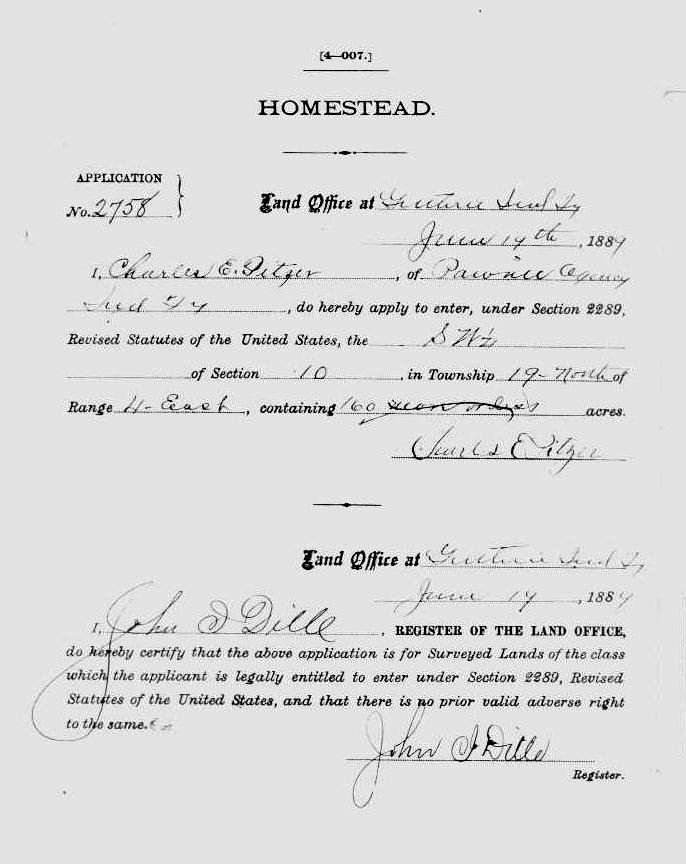 [4—007.]
HOMESTEAD.
APPLICATION
No. 2758
Land Office at Guthrie Ind Ty
June 19th, 1889
I, Charles E. Pitzer, of Pawnee Agency
Ind Ty, do hereby apply to enter, under Section 2289,
Revised Statutes of the United States, the S W ¼
of Section 10, in Township 19-North of
Range 4-East, containing 160 acres.
Charles E Pitzer
Land Office at Guthrie Ind Ty
June 19, 1889
I, John I Dille, REGISTER OF THE LAND OFFICE,
do hereby certify that the above application is for Surveyed Lands of the class
which the applicant is legally entitled to enter under Section 2289, Revised
Statutes of the United States, and that there is no prior valid adverse right
to the same.
John I Dille
Register.